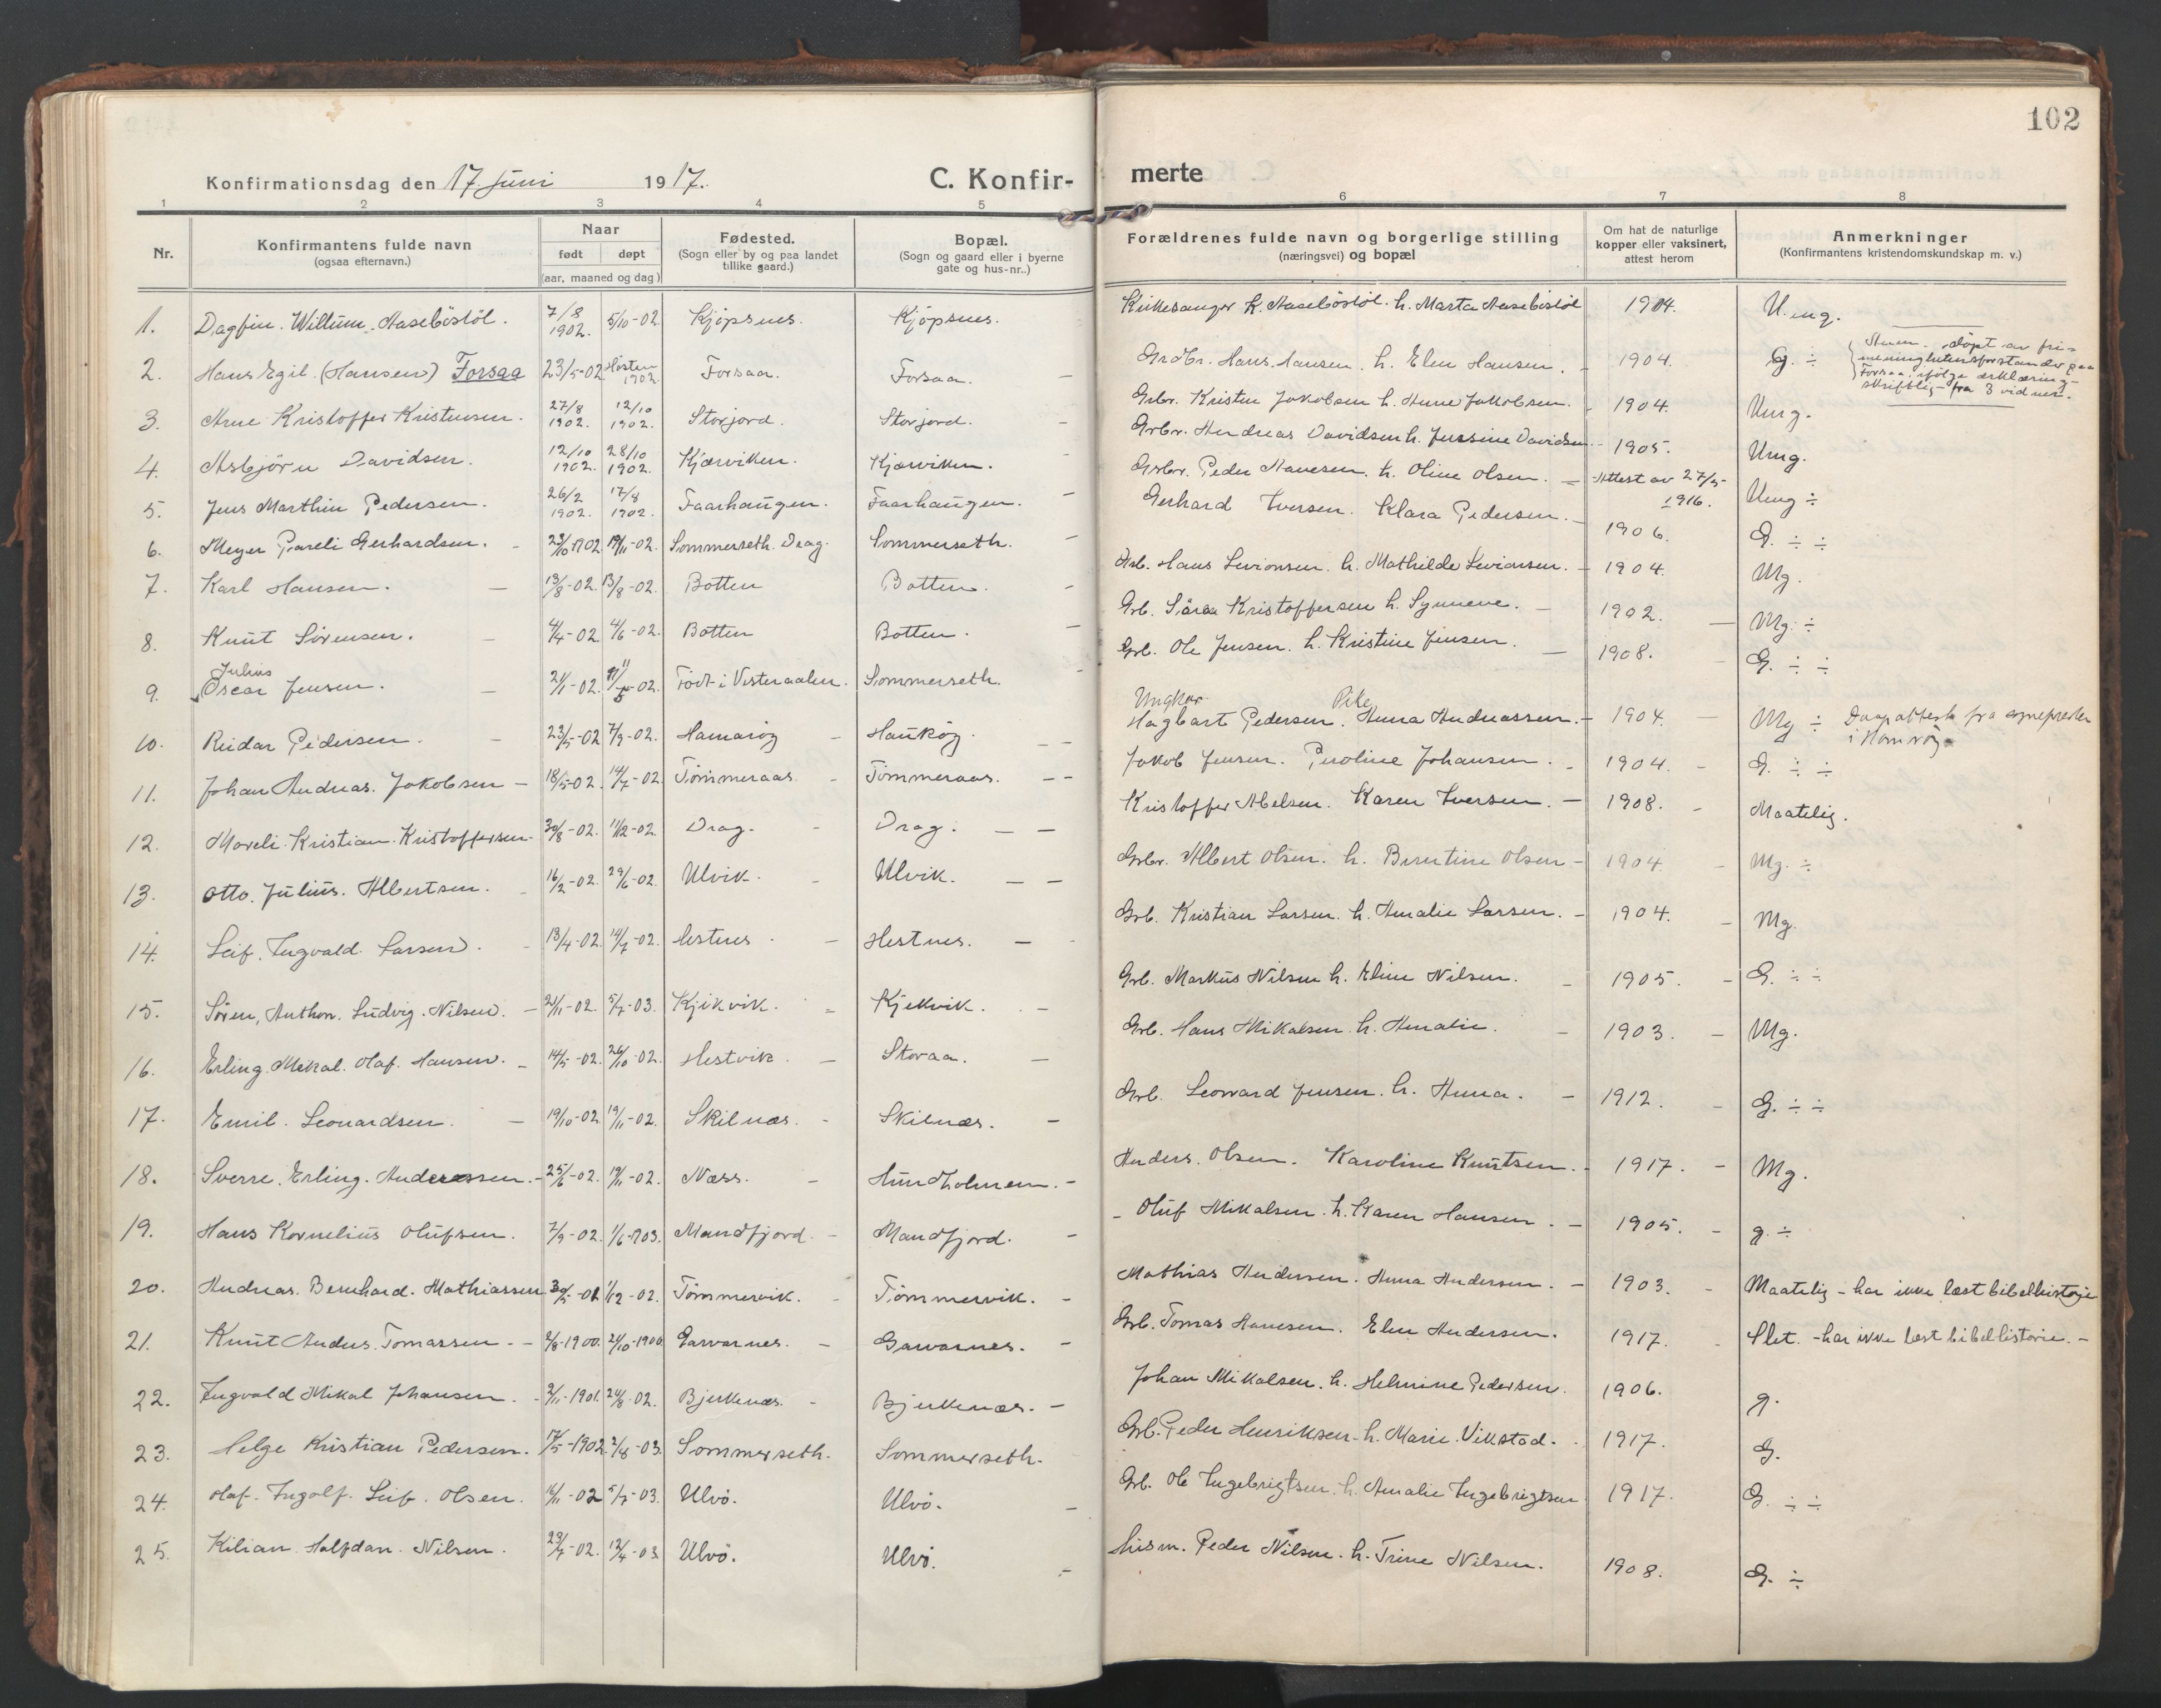 102
Konfirmationsdag den 17 juni 1917. C. Konfir- merte
1 2 3 4 5 6 7 8
Nr. Konfirmantens fulde navn (ogsaa efternavn.) Naar født døpt (aar, maaned og dag) Fødested. (Sogn eller by og paa landet tillike gaard.) Bopæl. (Sogn og gaard eller i byerne gate og hus-nr..) Forældrenes fulde navn og borgerlige stilling (næringsvei) og bopæl Om hat de naturlige kopper eller vaksinert, attest herom Anmerkninger (Konfirmantens kristendomskundskap m. v.)
1. Dagfin. Willum. Aaseböstöl. 7/8 1902. 5/10-02. Kjöpsnes. Kjöpsnes. Kirkesanger K. Aaseböstöl. h. Marta Aaseböstöl 1904. U. mg.
2. Hans Egil. (Hansen) Forsaa 23/5-02 Høsten 1902. Forsaa. Forsaa. Grdbr. Hans Hansen. h. Elen Hansen. 1904. G. ÷ Anm. døpt av frimenighetsforstander paa Forsaa ifølge erklæring skriftlig - fra 3 vidner.
3. Arne Kristoffer Kristensen. 27/8 1902. 12/10 1902. Storjord. Storjord. Grbr. Kristen Jakobsen h. Anne Jakobsen. 1904. Umg.
4. Asbjörn Davidsen. 12/10 1902. 28/10 1902. Kjærviken. Kjærviken. Grbr. Andreas Davidsen h. Jenssine Davidsen 1905. Umg.
5. Jens Marthin Pedersen. 26/2 1902. 17/8 1902. Faarhaugen. Faarhaugen. Grbr. Peder Hansen. h. Oline Olsen. Attest av 27/5-1916. Umg ÷
6. Meyer Pareli Gerhardsen. 23/10 1902 19/11-02. Sommerseth. Drag. Sommerseth. Gerhard Iversen. Klara Pedersen. 1906. G. ÷ ÷
7. Karl Hansen. 13/8-02. 13/8-02. Botten Botten. Grb. Hans Sevionsen. h. Mathilde Sevionsen. 1904. Mg.
8. Knut Sørensen. 4/4-02. 4/6-02. Botten Botten. Grb. Sören Kristoffersen h. Synneve. 1902. Mg. ÷
9. Julius Oscar Jensen. 21/1-02. Födt i Vesteraalen. Sommerseth. Grb. Ole Jensen. h. Kristine Jensen. 1908. G. ÷ ÷
10. Reidar Pedersen. 23/5-02 7/9-02. Hamaröy Haukøy. Ungkar Hagbart Pedersen. Pike Anna Andreassen. 1904. Mg ÷ Daapattest fra sognepresten i Hamrøy
11. Johan Andreas. Jakobsen 18/5-02. 14/7-02. Tömmeraas. Tömmeraas. Jakob Jensen. Peroline Johansen. 1904. G. ÷ ÷
12. Mareli. Kristian. Kristoffersen 30/8-02. 11/12-02. Drag. Drag. Kristoffer Abelsen. Karen Iversen. 1908. Maatelig.
13. Otto. Julius. Albertsen. 16/2-02. 29/6-02. Ulvik. Ulvik. Grbr. Albert Olsen. h. Berntine Olsen 1904. Mg. ÷
14. Leif. Ingvald. Larsen. 13/4-02. 14/7-02. Hestnes. Hestnes. Grb. Kristian Larsen. h. Amalie Larsen. 1904. Mg.
15. Sören, Anthon. Ludvig. Nilsen. 21/11-02. 5/7-03. Kjikvik. Kjekvik. Grb. Markus Nilsen h. Eline Nilsen. 1905. G. ÷ ÷
16. Erling. Mikal. Olaf. Hansen. 14/5-02. 26/10-02. Hestvik. Storaa. Grb. Hans Mikalsen h. Amalie. 1903. Mg.
17. Emil. Leonardsen. 19/10-02 19/11-02. Skilnæs. Skilnæs. Grb. Leonard Jensen. h. Anna. 1912. G. ÷ ÷
18. Sverre. Erling. Anderssen. 25/6-02. 19/11-02. Næss. Hundholmen. Anders. Olsen. Karoline Knutsen. 1917. Mg.
19. Hans Kornelius Olufsen. 7/9-02. 1/6-1903. Mandfjord. Mandfjord. Oluf Mikalsen. h. Karen Hansen. 1905. g. ÷
20. Andreas. Bernhard. Mathiassen 30/5-01. 1/12-02. Tömmervik. Tömmervik. Mathias Andersen. Anna Andersen. 1903. Maatelig - har ikke læst bibelhistorje
21. Knut Anders. Tomassen 2/8-1900. 21/10-1900 Garvarnes. Garvarnes. Grb. Tomas Hansen. Elen Andersen. 1917. Slet. - har ikke læst bibelhistorie.
22. Ingvald Mikal Johansen. 2/11-1901. 24/8-02. Bjerkenæs. Bjerkenæs. Johan Mikalsen. h. Helmine Pedersen. 1906. g.
23. Helge Kristian Pedersen. 17/5-1902. 2/8-03. Sommerseth. Sommerseth. Grb. Peder Henriksen. h. Marie. Vikstad. 1917. G.
24. Olaf. Ingolf. Leif. Olsen. 16/11-02 5/7-03. Ulvö. Ulvö. Grb. Ole Ingebrigtsen. h. Amalie Ingebrigtsen 1917. G. ÷ ÷
25. Kilian Halfdan. Nilsen. 23/7-02. 12/4-03 Ulvö. Ulvö. Husm. Peder Nilsen. h. Trine Nilsen. 1908. G. ÷